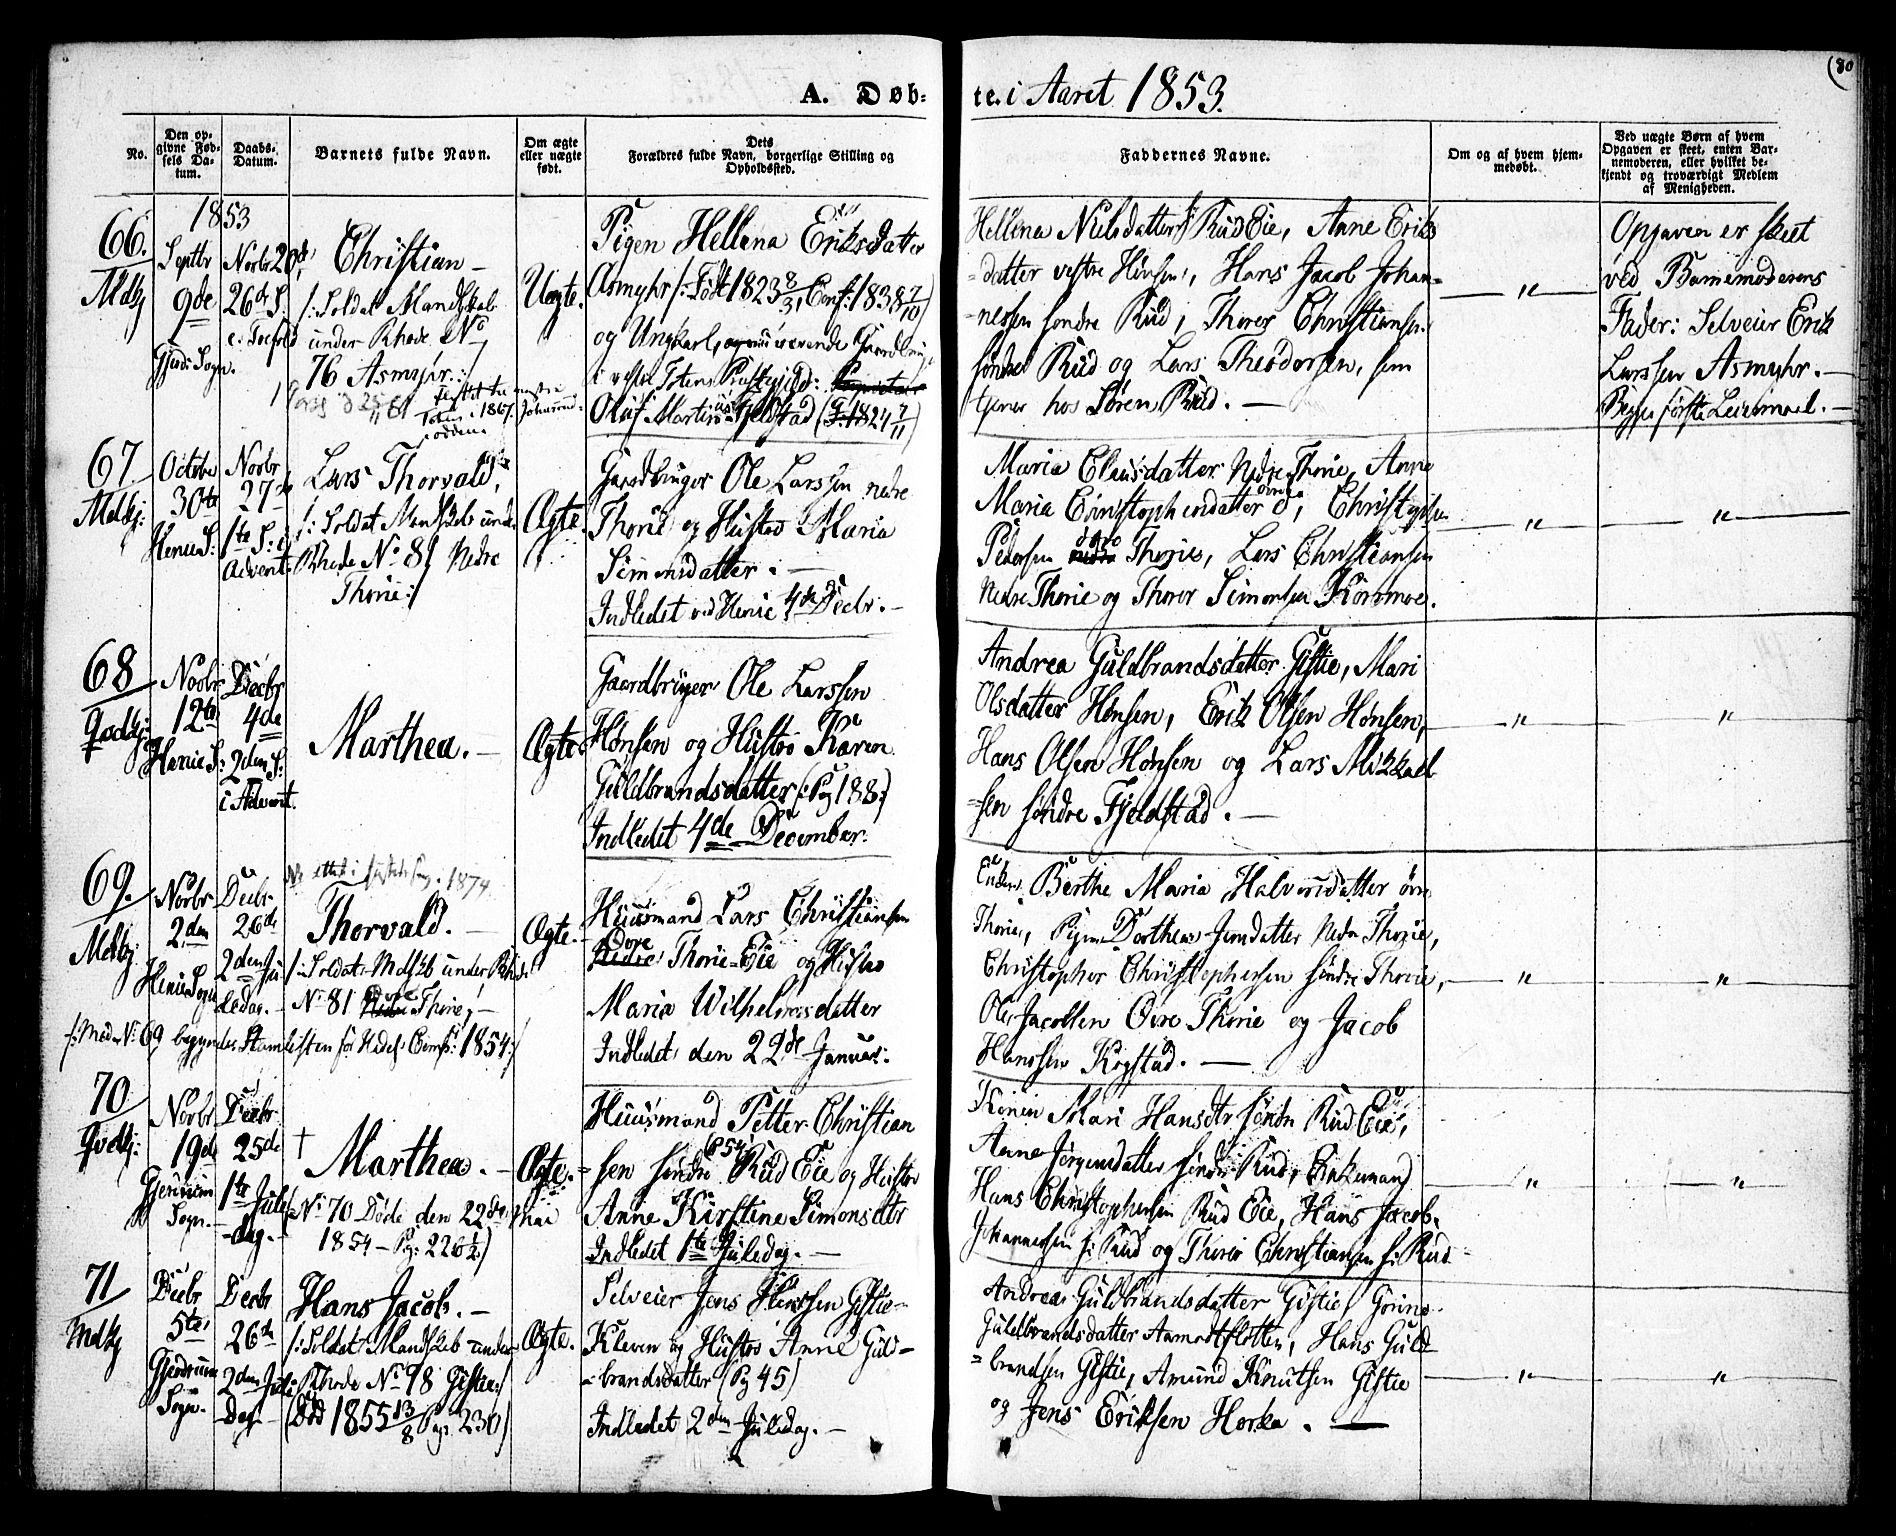 (80
A. Døb-
te. i Aaret 1853.
No.
Den opgivne Fødsels Datum.
Daabs-Datum.
Barnets fulde Navn.
Om ægte eller uægte født.
Dets Forældres fulde Navn, borgerlige Stilling og Opholdssted.
Faddernes Navne.
Om og af hvem hjemmedøbt.
Ved uægte Børn af hvem Opgaven er skeet, enten Barnemoderen, eller hvilket bekjendt og troværdigt Medlem af Menigheden.
1853
66.
Mdkj
Septbr
9de
Gjerd: Sogn.
Novbr 20de
26de S.
e. Trefold
Christian –
/: Soldat Mandskab
under Rhode No
76 Asmyhr :/
Uægte.
Pigen Hellena Eriksdatter
Asmyhr /: Født 1823 8/3, Conf: 1838 7/10)
og Ungkarl, nuværende Gaardbruger
i vestre Totens Præstegjeld:
Oluf Martinus Fjeldstad (F. 1824 7/11)
Hellena Nielsdatter Rud Eie, Anne Eriks
-datter vestre Hønsen, Hans Jacob Johan-
-nessen søndre Rud, Thorer Christiansen
søndre Rud og Lars Theodorsen, som
tjener hos Søren Rud. –
– " –
Opgaven er skeet
ved Barnemoderens
Fader: Selveier Erik
Larssen Asmyhr. –
Begges første Leiermaal. –
67
Mdkj:
Octobr
30te
Henie S:
Novbr
27de
1ste S: i
Advent.
Lars Thorvald,
/: Soldat Mandskab under
Rhode No 81 Nedre
Thorie :/
Ægte.
Gaardbruger Ole Larssen nedre
Thorie og Hustro Maria
Simensdatter. –
Indledet ved Henie 4de Decbr. –
Maria Eliusdatter Nedre Thorie, Anne
Maria Christophersdatter øvre d., Christopher
Pedersen øvre Thorie, Lars Christiansen
Nedre Thorie og Thorer Simonsen Kommoe.
– " –
– " –
68
Qvdkj:
Novbr
12te
Henie S:
Decbr
4de
2den S:
i Advent.
Marthea. –
Ægte
Gaardbruger Ole Larssen
Hønsen og Hustro Karen
Guldbrandsdatter /: Pag 188 :/
Indledet 4de December.
Andrea Guldbrandsdatter Gistie, Mari
Olsdatter Hønsen, Erik Olsen Hønsen,
Hans Olsen Hønsen og Lars Mikkel
-sen søndre Fjeldstad. –
– " –
"
69.
Mdkj
Novbr
2den
Henie Sogn
Decbr.
26de
2den Ju
ledag. –
1874.
Thorvald. –
/: Soldat Mdskb under Rhode
No 81 Thorie, –
/: Med No 69 begynder Stamlisten for Confs: 1854 :/
Ægte. –
Huusmand Lars Christiansen
Øvre Thorie-Eie og Hustro
Maria Wilhelmsdatter
Indledet den 22de Januar.
Enken Berthe Maria Halvorsdatter øvre
Thorie, Pigen Dorthea Jensdatter Nedre Thorie,
Christopher Christophersen søndre Thorie,
Ole Jacobsen Øvre Thorie og Jacob
Hanssen Kogstad. –
– " –
– " –
70
Qvdkj:
Novbr
19de
Gjerdrum
Sogn. –
Decbr
25de
1ste Jule
-dag. –
† Marthea. –
No 70 Døde den 22de Mai
1854 – Pag: 226 1/2)
Ægte. –
Huusmand Petter Christian
-sen søndre Rud Eie og Hustro
Anne Kirstine Simonsdtr
Indledet 1ste Juledag. –
Konen Mari Hansdtr søndre Rud Eie,
Anne Jørgensdatter søndre Rud, Enkemand
Hans Christophersen Rud Eie, Hans Jacob
Johannessen s: Rud og Thorer Christiansen s: Rud
– " –
– "
71
Mdkj
Decbr
5te
Gjerdrum
Sogn.
Decbr
26de
2den Jule
Dag –
Hans Jacob. –
/: Soldat Mandskab under
Rhode No 78 Gistie :/
(Død 1855 13/8 Pag. 230)
Ægte.
Selveier Jens Gistie-
Kleven og Hustro Anne Guld-
-brandsdatter (Pag 45)
Indledet 2den Juledag. –
Andrea Guldbrandsdatter Gistie, Gorine
Guldbrandsdatter Aamodtslotten, Hans Guld
-brandsen Gistie, Amund Knutsen Gistie
og Jens Eriksen Horka. –
– " –
"